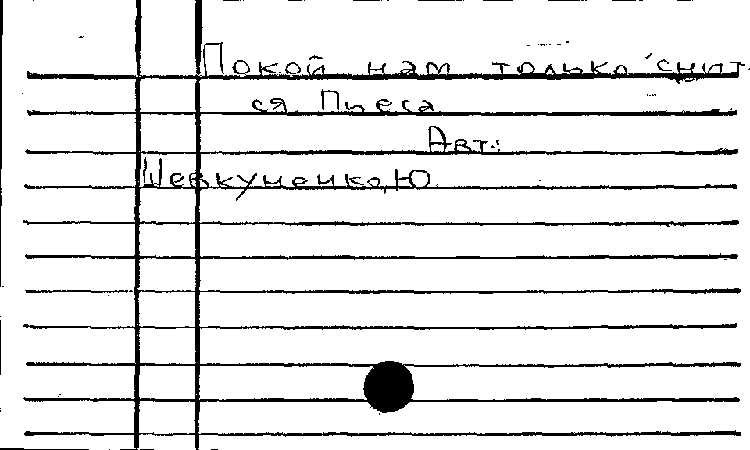 Покой нам только снит-
ся Пьеса
Авт.:
Шевкуненко, Ю.